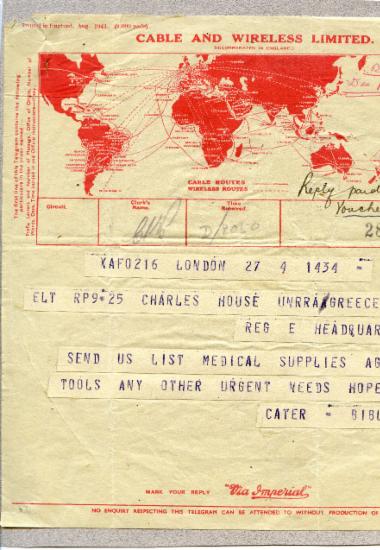 Printed in England. Aug. 1943. (6,000 pads).
CABLE AND WIRELESS LIMITED.
(INCORPORATED IN ENGLAND.)
The first line of this Telegram contains the following particulars in the order named:
Prefix Letters and Number of Message, Office of Origin, Number of Words, Date, Time handed in and Official Instructions—if any.
CABLE ROUTES
WIRELESS ROUTES
Reply paid
Voucher
28
Circuit.
Clerk's Name.
Time Received.
D/2020
XAF0216 LONDON 27 4 1434 =
ELT RP9·25 CHARLES HOUSE UNRRA GREECE
REG E HEADQUAR
SEND US LIST MEDICAL SUPPLIES AG
TOOLS ANY OTHER URGENT NEEDS HOPE
CATER = BIBL
MARK YOUR REPLY "Via Imperial"
NO ENQUIRY RESPECTING THIS TELEGRAM CAN BE ATTENDED TO WITHOUT PRODUCTION OF